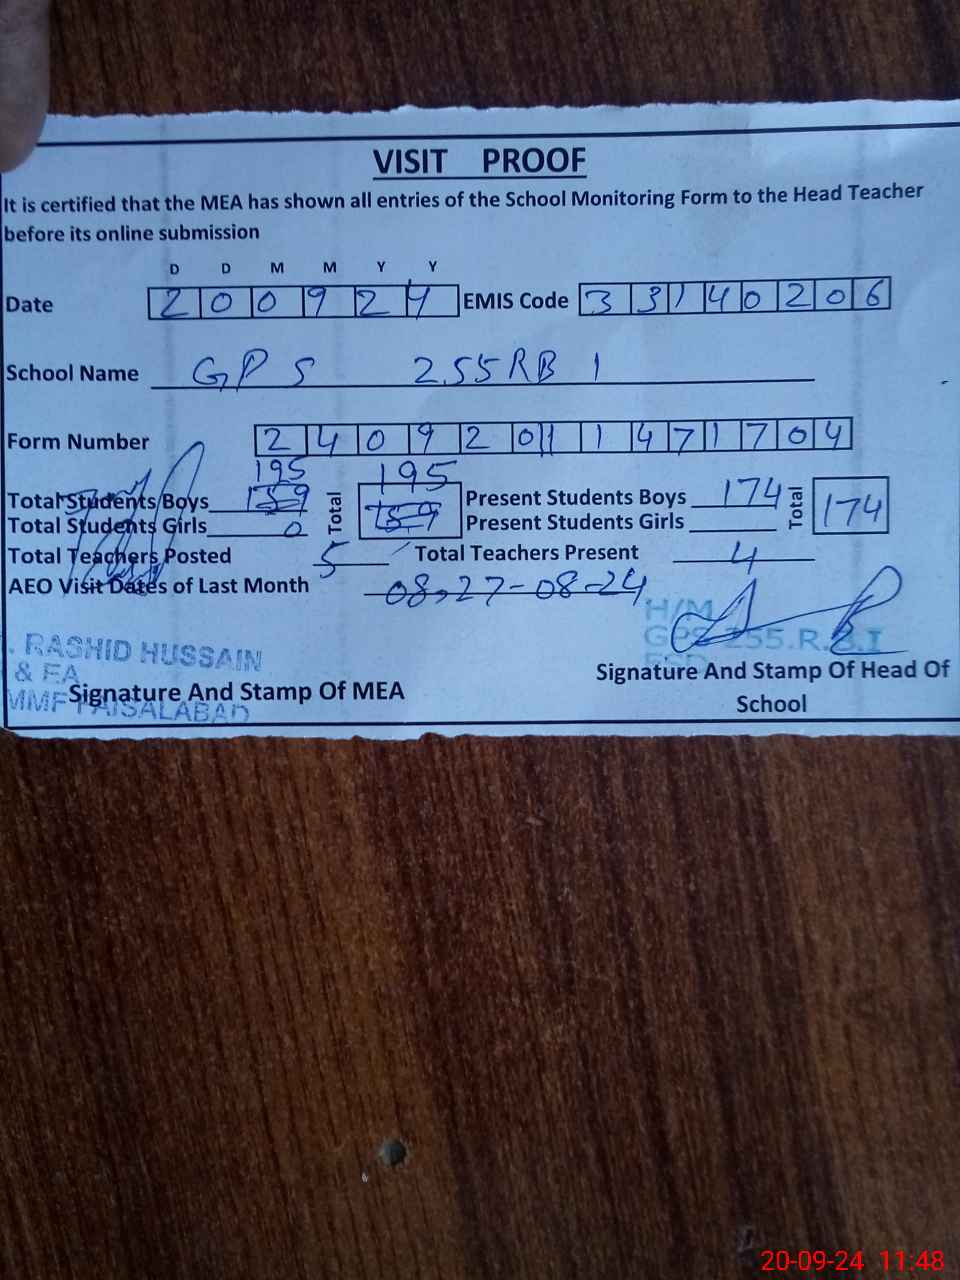 VISIT PROOF
It is certified that the MEA has shown all entries of the School Monitoring Form to the Head Teacher
before its online submission
D D M M Y Y
Date 2 0 0 9 2 4 EMIS Code 3 3 1 4 0 2 0 6
School Name GPS 255RB 1
Form Number 2 4 0 9 2 0 1 1 4 7 1 7 0 4
195 195
Total Students Boys 159 Total 159 Present Students Boys 174 Total 174
Total Students Girls 0 Present Students Girls
Total Teachers Posted 5 Total Teachers Present 4
AEO Visit Dates of Last Month 08,27-08-24
H/M
GPS 255.R.B.I
. RASHID HUSSAIN
& EA
Signature And Stamp Of MEA
MMF FAISALABAD
Signature And Stamp Of Head Of
School
20-09-24 11:48